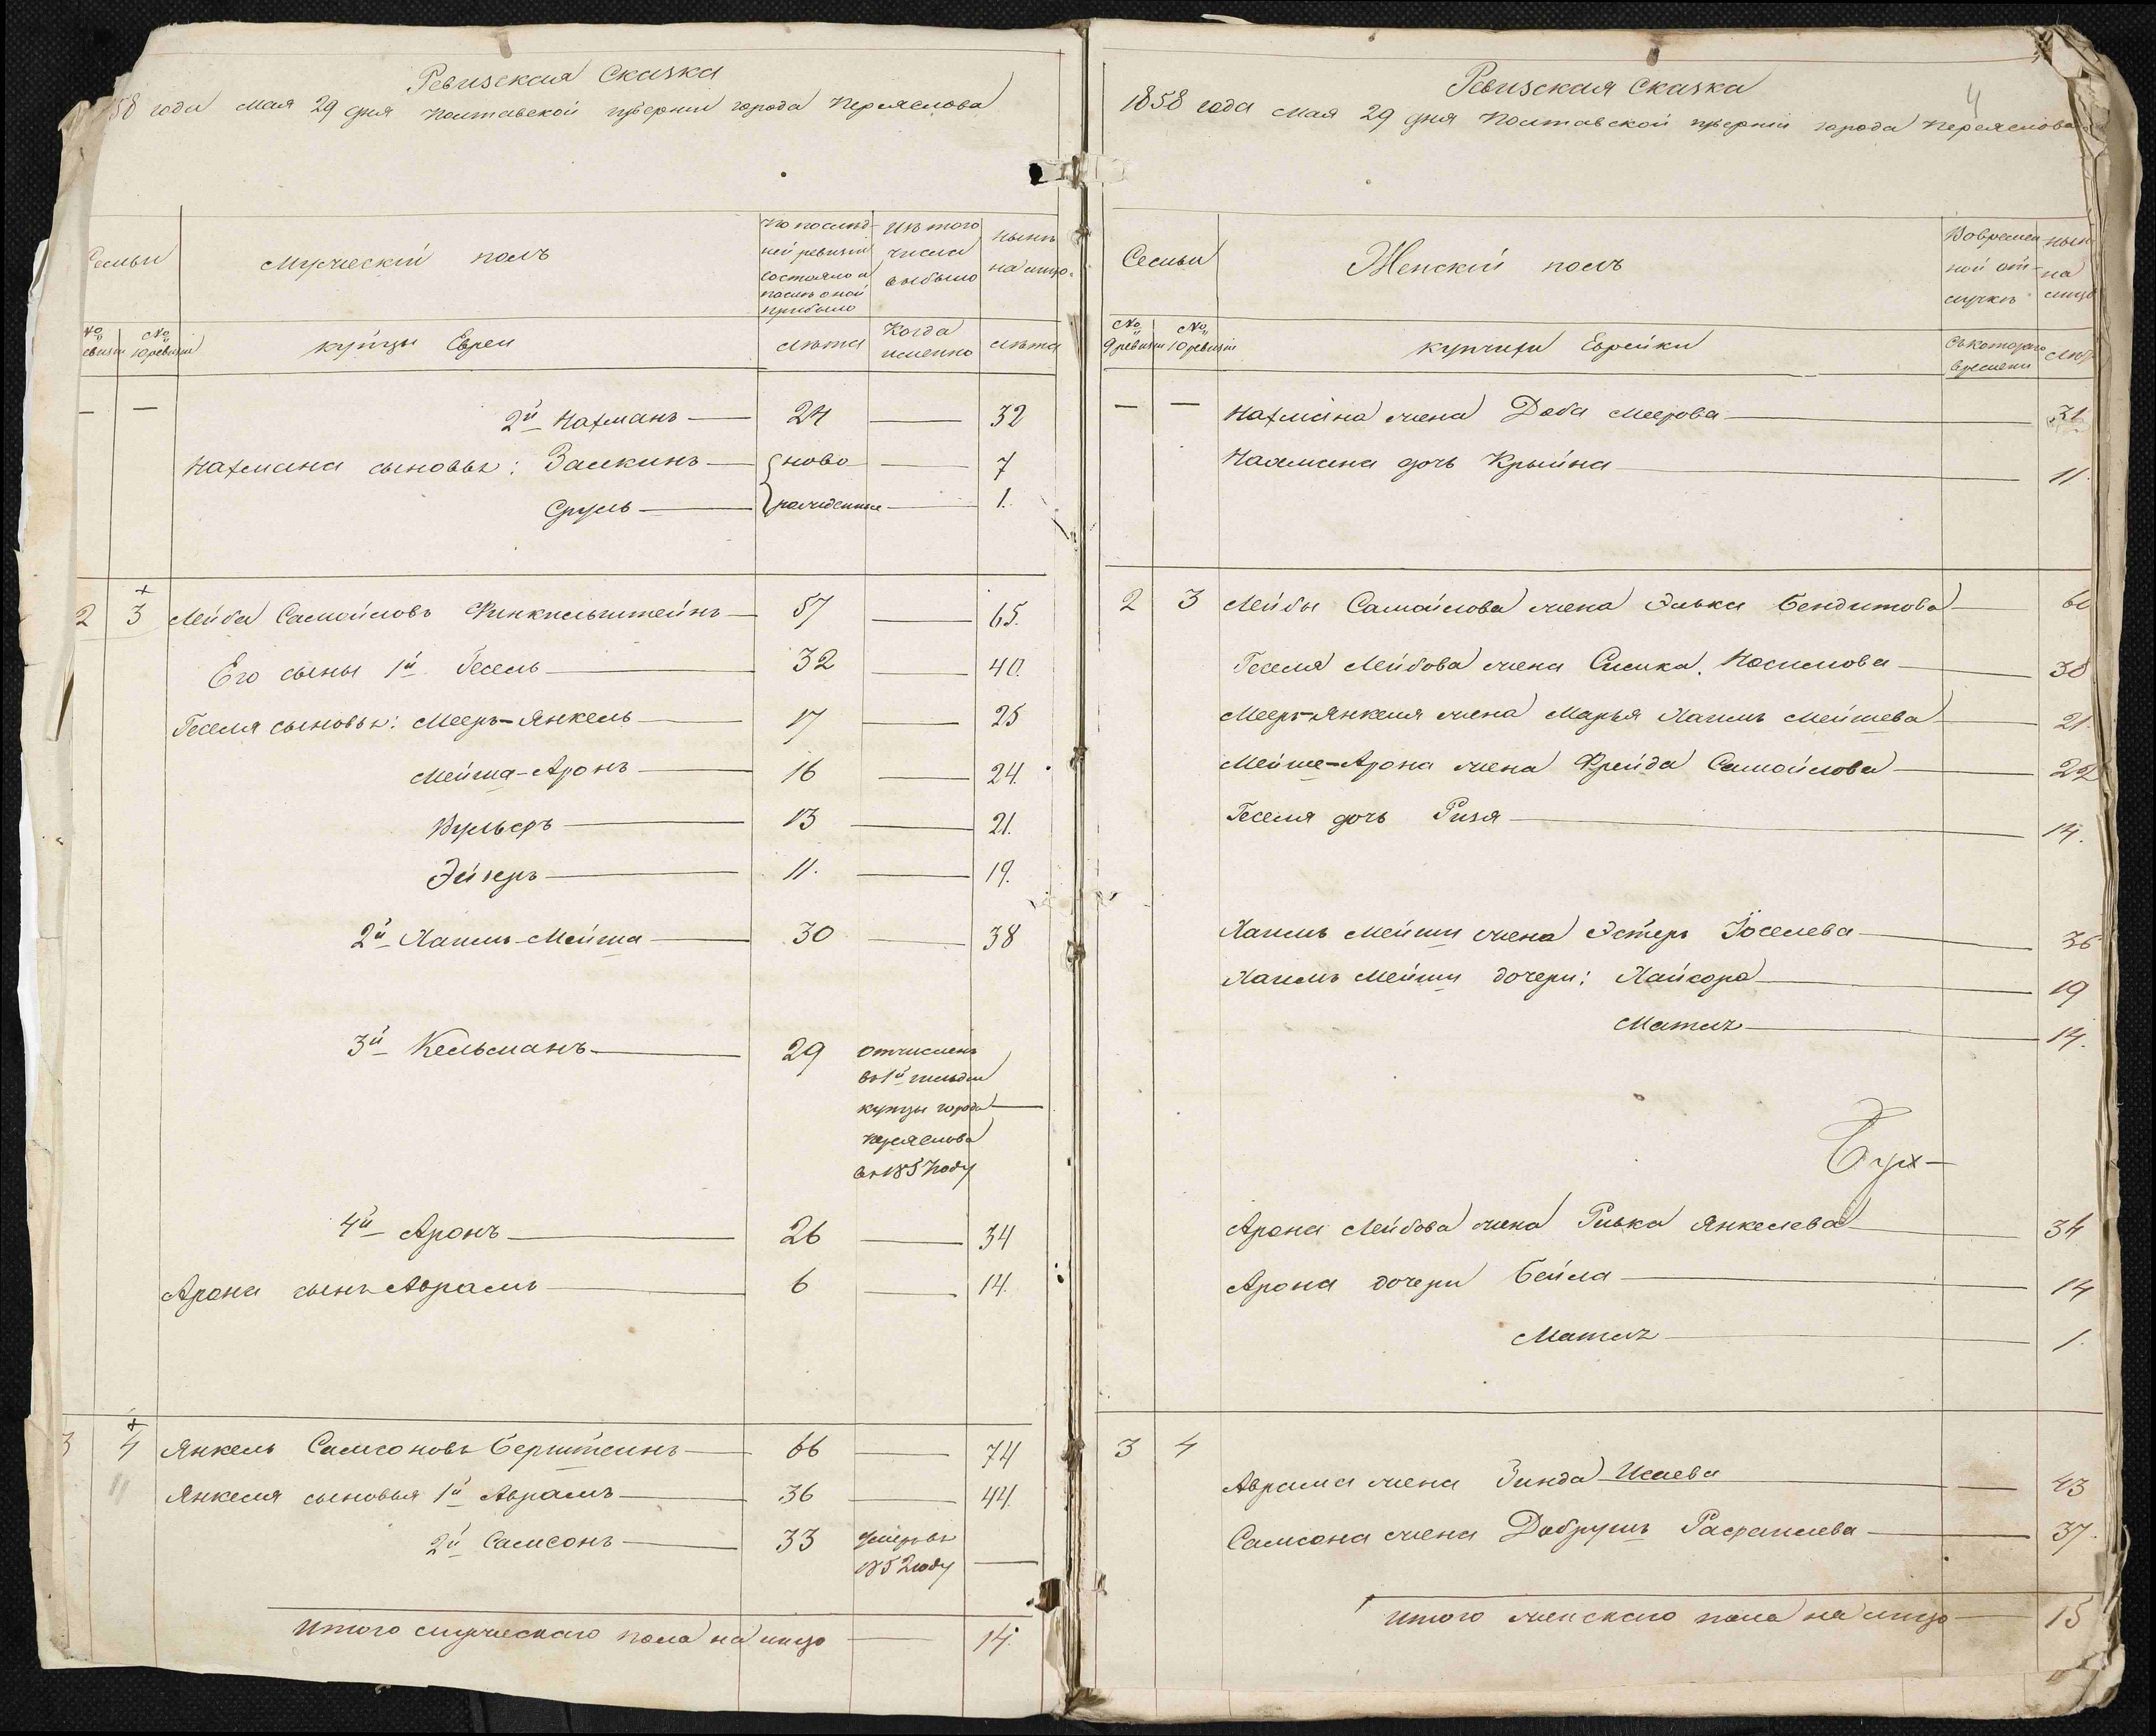 Ревизская Сказка
58 года Мая 29 дня Полтавской губернии города Переяслова
Семьи
Мужеский полъ
По послѣд-
ней ревизіи
состояло и
послѣ оной
прибыло
Изъ того
числа
выбыло
Нынѣ
на лицо
№
№
10 ревизіи
купцы Евреи
Лѣта
Когда
именно
Лѣта
— —
2й Нахманъ — 24 — 32
Нахмана сыновья: Залкинъ — ново — 7
Сруль — рожденные — 1.
2 3 Лейба Самойловъ Финкильштейнъ — 57 — 65.
Его сыны 1й Гесель — 32 — 40.
Геселя сыновья: Мееръ-Янкель — 17 — 25
Мейша-Аронъ — 16 — 24.
Вульфъ — 13 — 21.
Эйзеръ — 11. — 19.
2й Хаимъ-Мейша — 30 — 38
3й Кельманъ — 29 отчисленъ
въ 1й гильдіи
купцы города —
Переяслова
въ 1857 году
4й Аронъ — 26 — 34
Арона сынъ Аврамъ — 6 — 14.
3 4 Янкель Самсоновъ Берштеинъ — 66 — 74
Янкеля сыновья 1й Аврамъ — 36 — 44.
2й Самсонъ — 33 умеръ въ
1852 году —
Итого мужескаго пола на лицо — 14.
4
Ревизская Сказка
1858 года Мая 29 дня Полтавской губерніи города Переяслова
Семьи
Женскій полъ
Во времен
ной от-
лучкѣ
Нын
на
лицо
№
9 ревизіи
№
10 ревизіи
купчихи Еврейки
Съ котораго
времени
Лѣт
— — Нахмана жена Доба Меерова — 31
Нахмана дочь Крыйна — 11.
2 3 Лейбы Самойлова жена Элька Бендитова — 60
Геселя Лейбова жена Симка — 38
Мееръ-Янкеля жена Марья Хаимъ Мейшева — 21.
Мейше-Арона жена Фрейда Самойлова — 22
Геселя дочь Ризя — 14.
Хаимъ Мейши жена Эстеръ Іоселева — 36
Хаимъ Мейши дочери: Хайсора — 19
Матля — 14.
Арона Лейбова жена Ривка Янкелева — 34
Арона дочери Бейла — 14
Матля — 1.
3 4
Аврама жена Зинда Исаева — 43
Самсона жена Добрушъ Рафаилева — 37.
Итого женскаго пола на лицо — 15